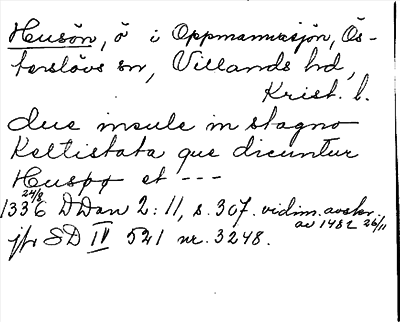 Husön, ö i Oppmannasjön, Ös-
terslövs sn, Villands hd,
Krist. l.
due insule in stagno
Keltistata que dicuntur
Huspø et ---
1336 24/8 DDan 2: 11, s. 307. vidim. avskr.
av 1482 26/11
jfr SD IV 521 nr. 3248.